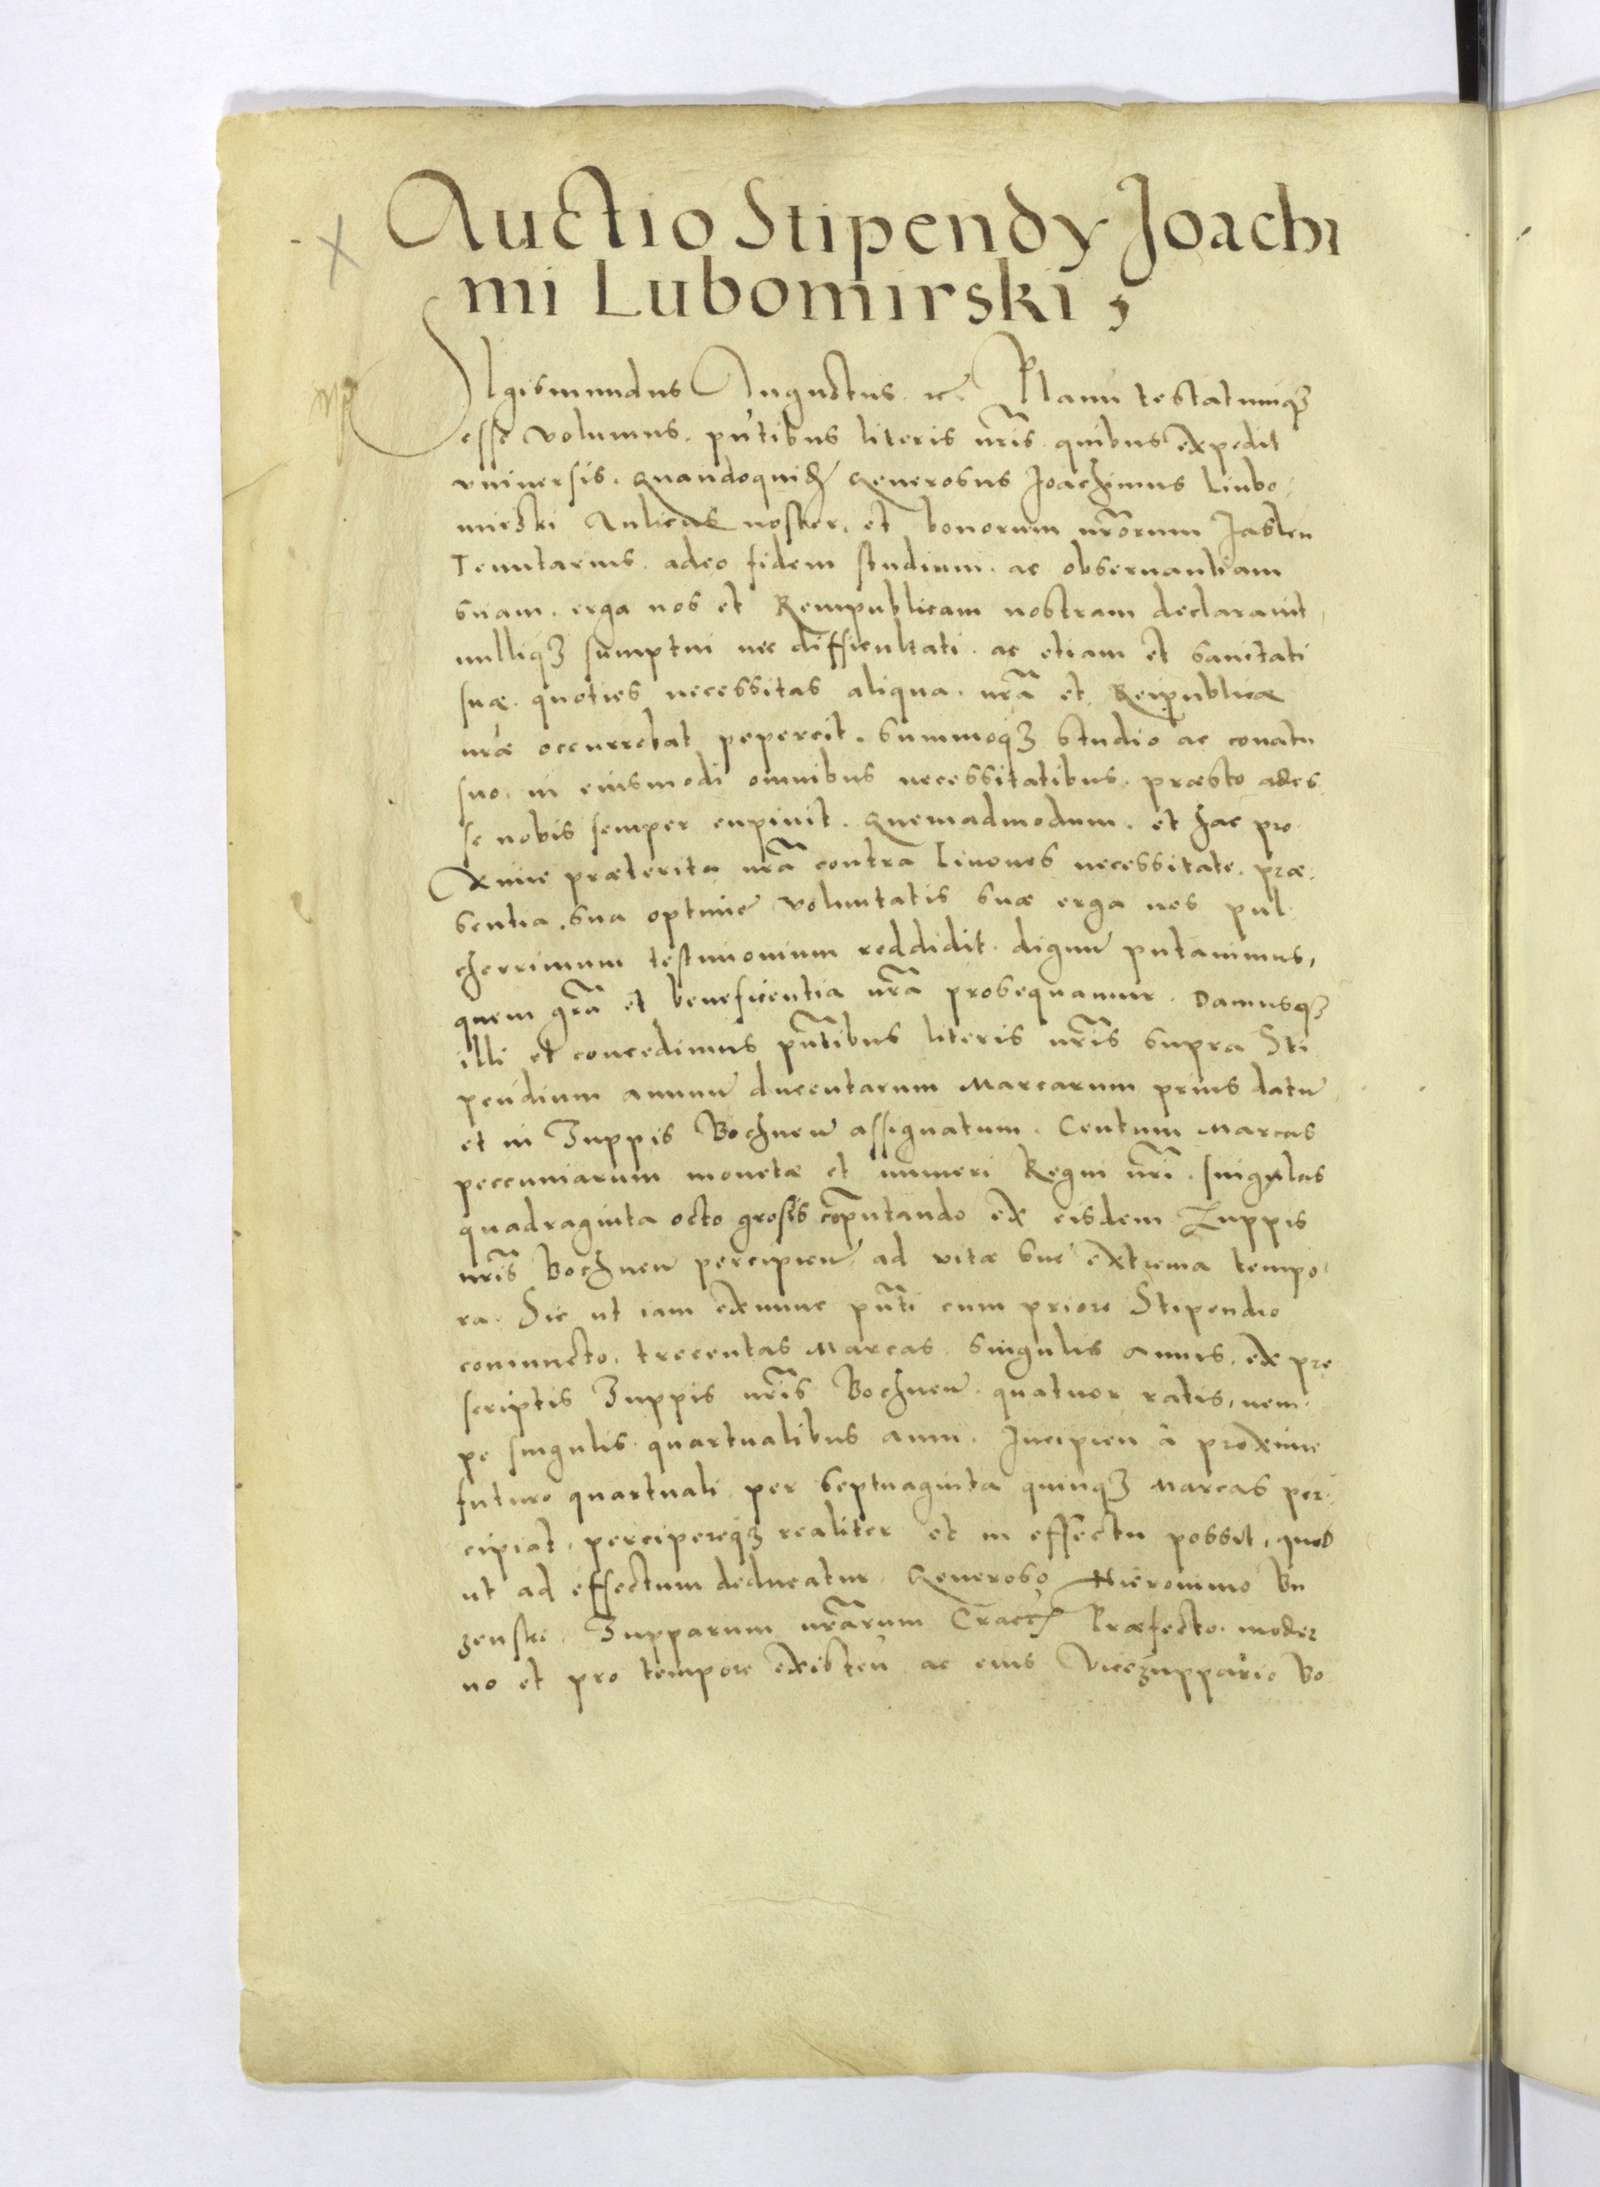 Auctio Stipendy Joachi
mi Lubomirski,
Sigismundus Augustus ꝛc. Planū testatumqȝ
esse volumus. pñtibus literis nr̃is quibus expedit
vniuersis. Quandoquidē Generosus Joachimus Liubo-
mirski Aulicus noster, et bonorum nr̃orum Jaslen
Tenutarius. adeo fidem studium. ac obseruantiam
suam. erga nos et Rempublicam nostram declarauit,
nulliqȝ sumptui nec difficultati. ac etiam et sanitati
suæ. quoties necessitas aliqua. nr̃a et Reipublicæ
nr̃æ occurrebat pepercit. summoqȝ studio ac conatu
suo. in eiusmodi omnibus necessitatibus. præsto ades
se nobis semper cupiuit. Quemadmodum. et hac pro
xime præterita nr̃a contra Liuones necessitate. præ-
sentia. sua optime voluntatis suæ erga nos pul
cherrimum testimonium reddidit. dignū putauimus,
quem gr̃a et beneficentia nr̃a prosequamur. Damusqȝ
illi et concedimus pñtibus literis nr̃is supra Sti
pendium annuū ducentarum Marcarum prius datū
et in Zuppis Bochneñ assignatum. Centum Marcas
peccuniarum monetæ et numeri Regni nr̃i. singulas
quadraginta octo grosis cõputando ex eisdem Zuppis
nr̃is Bochneñ percipieñ. ad vitæ sue extrema tempo-
ra. Sic ut iam exnunc pñti cum priore Stipendio
coniuncto. trecentas Marcas. singulis annis. ex pre
scriptis Zuppis nr̃is Bochneñ. quatuor ratis, nem-
pe singulis quartualibus anni. Incipieñ à proxime
futuro quartuali per septuaginta quinqȝ Marcas per-
cipiat, percipereqȝ realiter et in effectu possit, quod
ut ad effectum deducatur. Generoso Hieronimo Bu
zenski. Zupparum nr̃arum Præfecto. moder
no et pro tempore existeñ ac eius Vicezuppario Bo